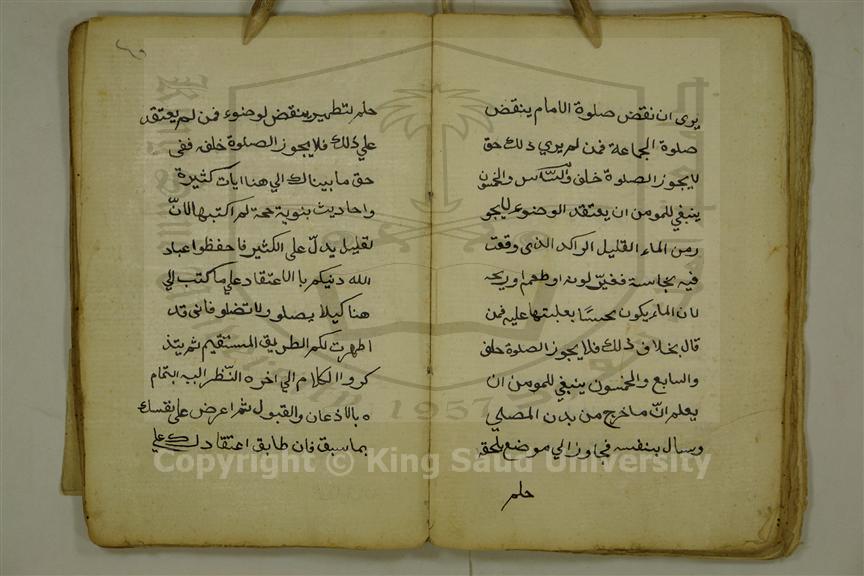 يرى ان نقض صلوة الامام ينقض
صلوة الجماعة فمن لم يري ذلك حق
لايجوز الصلوة خلف والسادس والخمسون
ينبغي للمومن ان يعتقد الوضوء لايجو
زمن الماء القليل الراكد الذى وقعت
فيه نجاسة فغيّر لونه او طعمه او ريحه
لان الماء يكون نجسًا بغلبتها عليه فمن
قال بخلاف ذلك فلا يجوز الصلوة خلف
والسابع والخمسون ينبغي للمومن ان
يعلم انّ ما خرج من بدن المصلي
وسال بنفسه فجاوز الي موضع يلحقه
حلم
حلم لتطهير ينقض لوضوء فمن لم يعتقد
علي ذلك فلا يجوز الصلوة خلفه ففى
حق ما بيناك الي هنا ايات كثيرة
واحاديث بنوية جمة لم اكتبها لانّ
لقليل يدلّ على الكثير فاحفظوا عباد
الله دنيكم باالاعتقاد علي ما كتب الي
هنا كيلا يضلو ولا تضلو فانى قد
اظهرت لكم الطريق المستقيم ثم يتذ
كروا الكلام الي اخره النّظر اليه بتمام
ه بالاذعان والقبول ثم اعرض على نفسك
بما سبق فان طابق اعتقادك علي
Copyright © King Saud University
1957